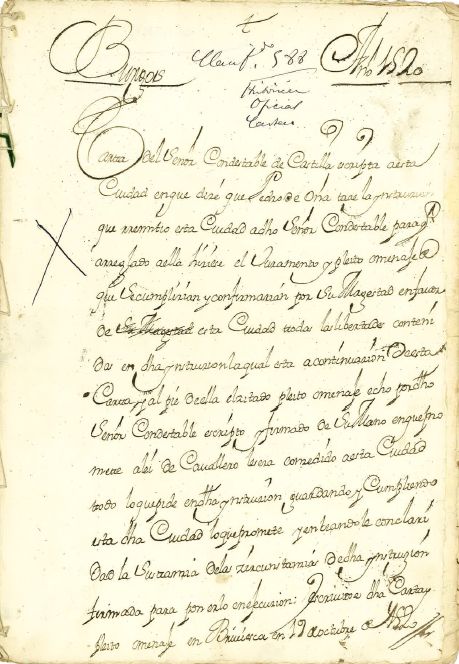 Burgos
Año 1520
Carta del Señor Condestable de Castilla escripta a esta
Ciudad en que dize que Pedro de Oña trae la ynstruzion
que rremitio esta Ciudad a dho Señor Condestable para q
arreglado a ella hiziese el Juramento y pleito omenaje
que Secumplirian y confirmarian por Su Magestad en favor
de Su Magestad esta Ciudad todas las libertades conteni
das en dha ynstruzion la qual esta a continuazion de esta
Carta y al pie de ella el zitado pleito omenaje echo por dho
Señor Condestable escripto y firmado de Su Mano en que pro
mete a lei de Cavallero le sera conzedido a esta Ciudad
todo lo que pide en dha ynstruzion guardando y Cumpliendo
esta dha Ciudad lo que promete y entrando le con clari
dad la Sustanzia de las zircunstanzias de dha ynstruzion
firmada para ponerlo en execuzion: Escriviose dha Carta y
pleito omenaje en Briviesca en 19 octubre de 1520